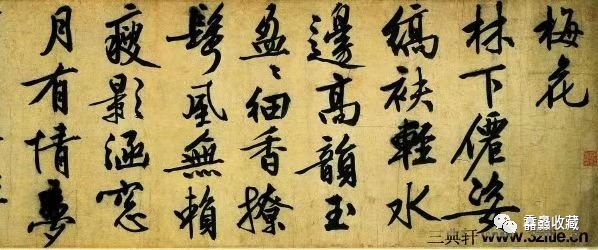 梅花
林下僊姿
縞袂輕水
邊高韻玉
盈〻細香撩
鬢風無賴
瘦影涵窓
月有情夢
三典轩
蠹蟲收藏